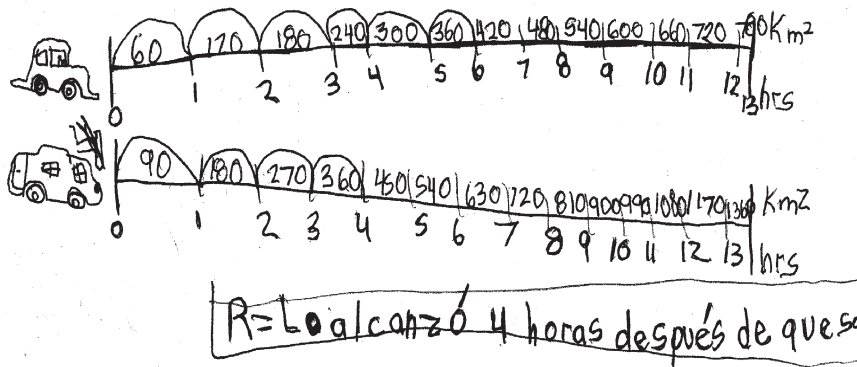 60 120 180 240 300 360 420 480 540 600 660 720 780 Km2
0 1 2 3 4 5 6 7 8 9 10 11 12 13 hrs
90 180 270 360 450 540 630 720 810 900 990 1080 1170 Km2
0 1 2 3 4 5 6 7 8 9 10 11 12 13 hrs
R=Lo alcanzó 4 horas después de que